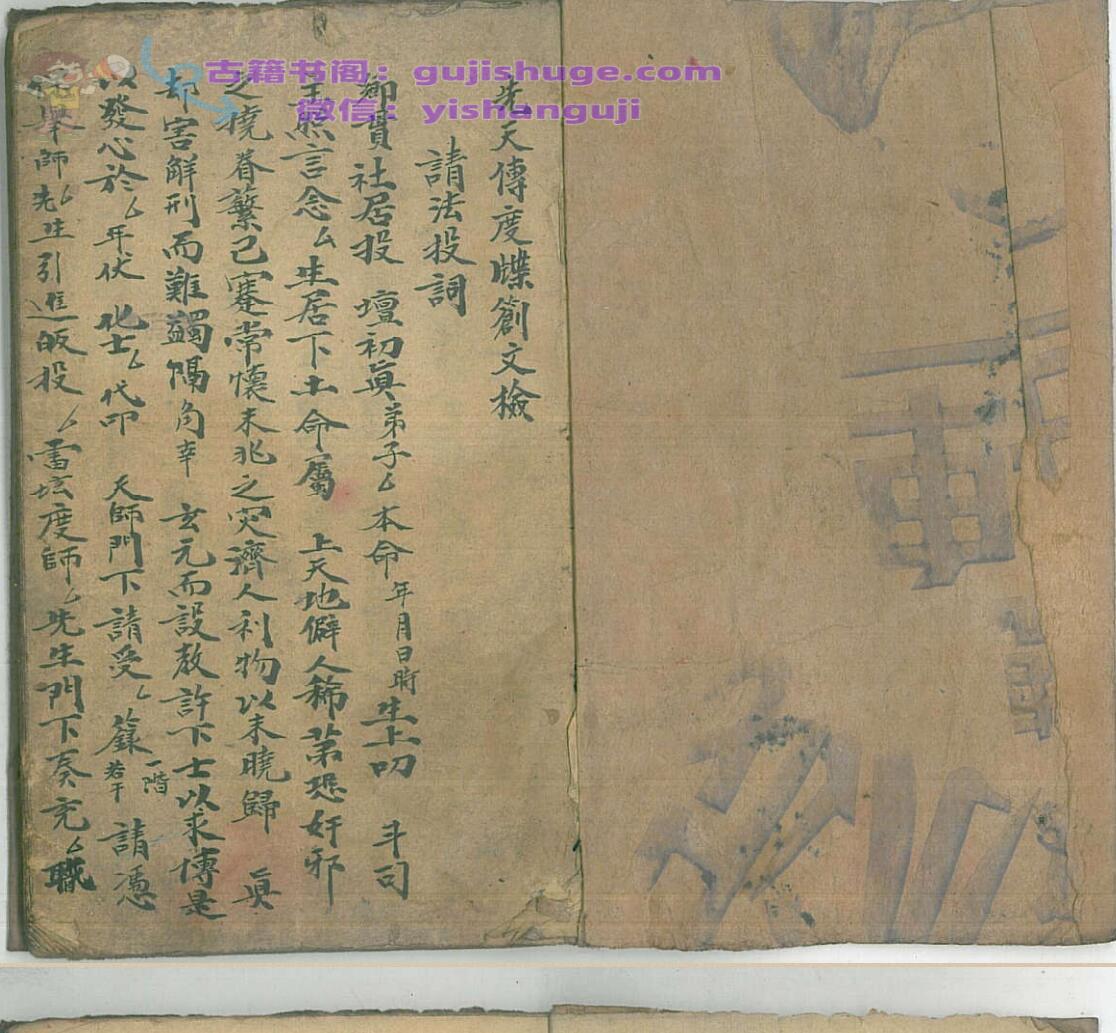 古籍书阁：gujishuge.com
微信：yishanguji
先天傳度牒劄文檢
請法投詞
鄉貫社居投 壇初眞弟子厶本命年月日時生上叩 斗司
主照言念厶生居下土命屬 上天地僻人稀第恐奸邪
之撓眷蘩己蹇常懷未兆之灾濟人利物以未曉歸 眞
却害解刑而難蠲隔角幸 玄元而設教許下士以求傳是
以發心於厶年伏 化士厶代叩 天師門下請受厶籙一階若干 請憑
舉師厶先生引進皈投厶雷坛度師厶先生門下奏充厶職